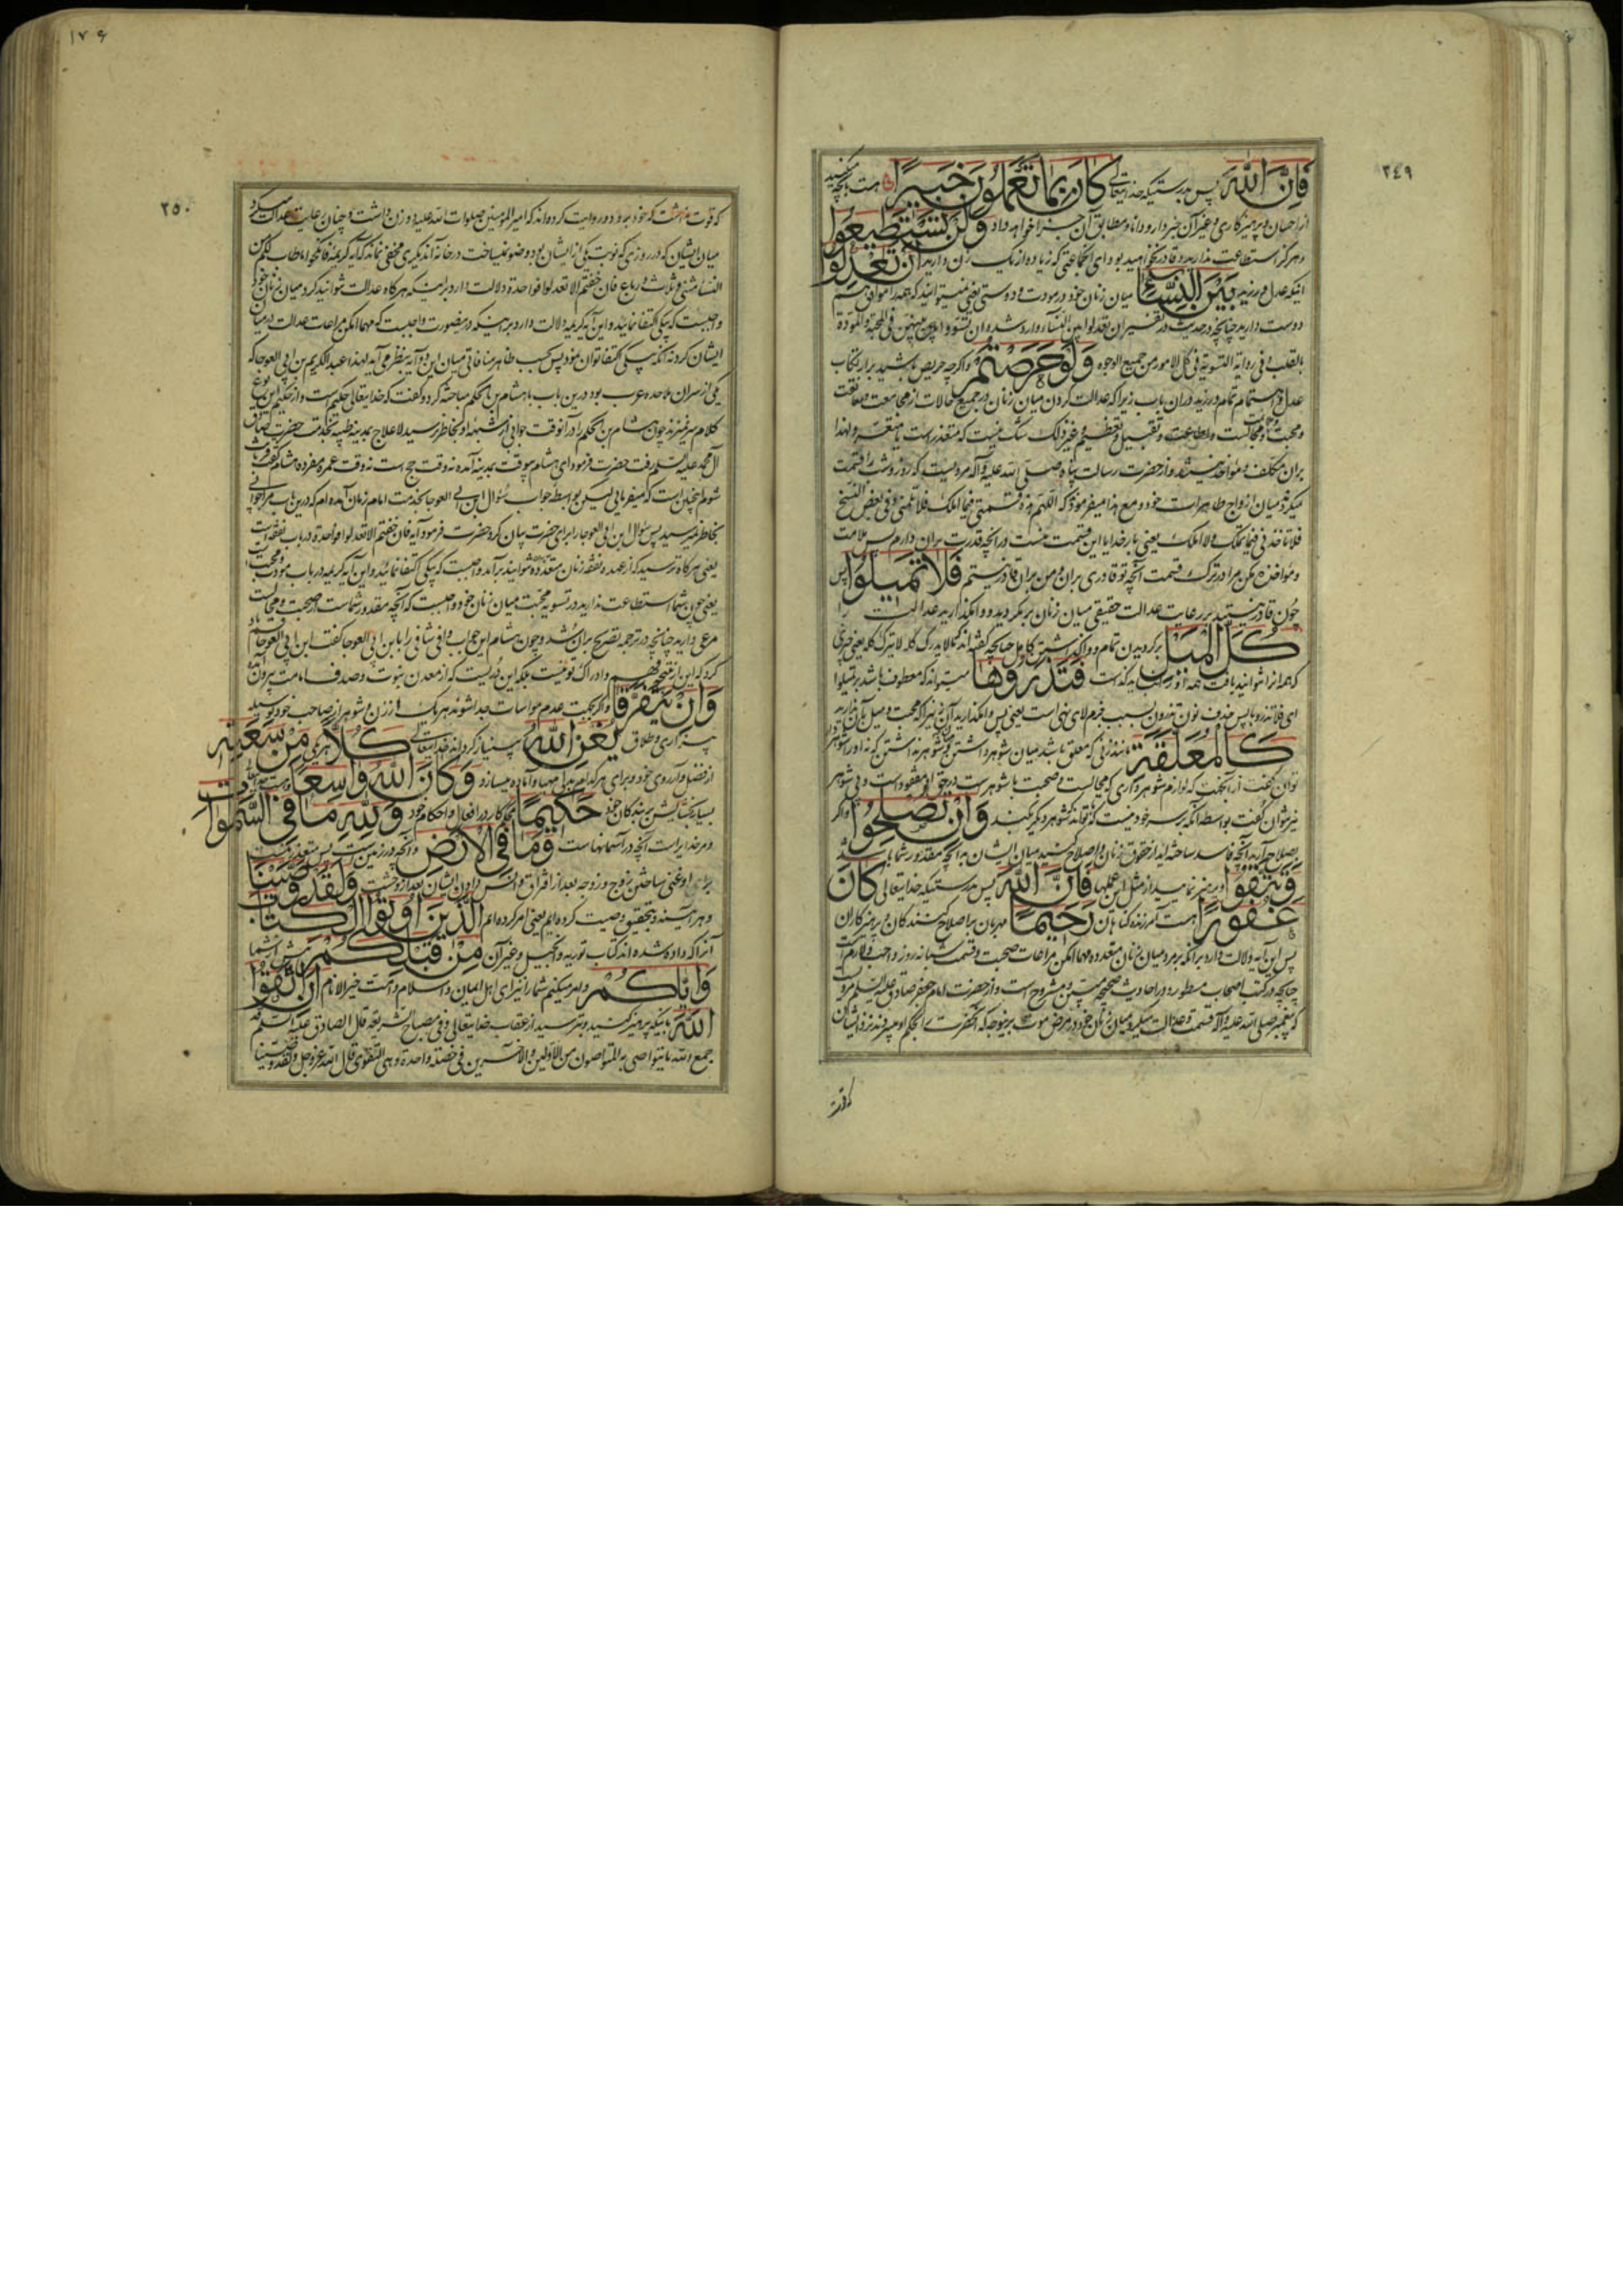 ٢٤٩
فَاِنَّ اللّهَ پس بدرستیکه خدایتعالی كَانَ بِمَا تَعْمَلُونَ خَبِيرًا هست بآنچه میکنید
از احسان و پرهیزکاری و غیر آن خبردار و دانا و مطابق آن جزا خواهد داد وَلَنْ تَسْتَطِيعُوا
و هرگز استطاعت ندارید و قادر نخواهید بود ای جماعتی که زیاده از یک زن دارید اَنْ تَعْدِلُوا
آنکه عدل ورزید بَيْنَ النِّسَاءِ میان زنان خود در مودت و دوستی یعنی نمیتوانید که همه را موافق هم
دوست دارید چنانچه در حدیث در تفسیر ان تعدلوا بین النساء وارد شده ان تسووا بینهن فی المحبة والمودة
بالقلب و فی روایة التسویة فی کل الامور من جمیع الوجوه وَلَوْ حَرَصْتُمْ و اگرچه حریص باشید بر ارتکاب
عدل و اهتمام تمام ورزید در آن باب زیرا که عدالت کردن میان زنان در جمیع حالات از مجامعت و معانقت
و محبت و مجالست و تقبیل و تعظیم و غیر ذلک شک نیست که متعذر است یا متعسر و لهذا
بر آن مکلف و مؤاخذ نیستند و از حضرت رسالت پناه صلی الله علیه و آله مرویست که روز و شب را قسمت
میکرد میان ازواج طاهرات خود و مع هذا میفرمود که اللهم هذه قسمتی فیما املک فلا تلمنی و فی بعض النسخ
فلا تأخذنی فیما تملک ولا املک یعنی بار خدایا این قسمت منست در آنچه قدرت بر آن دارم پس ملامت
و مؤاخذه مکن مرا در ترک قسمت آنچه تو قادری بر آن و من بر آن قادر نیستم فَلَا تَمِيلُوا پس
چون قادر نیستید بر رعایت عدالت حقیقی میان زنان بر مگردید و وامگذارید عدالت را
كُلَّ الْمَيْلِ برگردیدن تمام و واگذاشتن کامل چنانچه گفته‌اند ما لا یدرک کله لا یترک کله یعنی چیزی
که همه آنرا نتوانید یافت همه او را نباید گذاشت فَتَذَرُوهَا میتواند که معطوف باشد بر تمیلوا
ای فلا تذروها پس حذف نون تذرون بسبب جزم لای نهی است یعنی پس وامگذارید آن زنیرا که محبت و میل بآن ندارید
كَالْمُعَلَّقَةِ مانند زنی که معلق باشد میان شوهر داشتن و شوهر نداشتن که نه او را شوهردار
توان گفت از آنجهت که لوازم شوهرداری که مجالست و صحبت با شوهر است در حق او مفقود است و بی شوهر
نیز نتوان گفت بواسطه آنکه بر سر خود نیست که تواند شوهر دیگر بکند وَاِنْ تُصْلِحُوا و اگر
بصلاح آرید آنچه فاسد ساخته‌اید از حقوق زنان و اصلاح کنید میان ایشان به آنچه مقدور شما باشد
وَتَتَّقُوا و بپرهیزید از مثل این عملها فَاِنَّ اللّهَ پس بدرستیکه خدایتعالی كَانَ
غَفُورًا هست آمرزنده گناهان رَحِيمًا مهربان بر اصلاح کنندگان و پرهیزکاران
پس این آیه دلالت دارد بر آنکه بر مرد میان زنان متعدده مهما امکن مراعات صحبت و قسمت شبانه روز واجب و لازم است
چنانچه در کتب اصحاب مسطور و در احادیث صحیحه مبین و مشروح است و از حضرت امام جعفر صادق علیه السلم مرویست
که پیغمبر صلی الله علیه و آله قسمت و عدالت میکرد میان زنان خود در مرض موت بر نیوجه که آنحضرت را بحکم او میبردند نزد ایشان
که قوت
١٧۶
٢٥٠
که قوت نداشت که خود برود و روایت کرده‌اند که امیر المؤمنین صلوات الله علیه دو زن داشت و چنان رعایت عدالت میکرد
میان ایشان که در روزی که نوبت یکی از ایشان بود وضو نمیساخت در خانه آن دیگری مخفی نماند که آیه کریمه فانکحوا ما طاب لکم من
النساء مثنی و ثلاث و رباع فان خفتم الا تعدلوا فواحدة دلالت دارد بر اینکه هرگاه عدالت نتوانید کرد میان زنان خود
واجبست که بیکی اکتفا نمائید و این آیه کریمه دلالت دارد بر اینکه در ینصورت واجبست که مهما امکن مراعات عدالت در میان
ایشان کرد نه آنکه بیکی اکتفا توان نمود پس بحسب ظاهر منافاتی میان این دو آیه بنظر می‌آید لهذا عبد الکریم بن ابی العوجا که
یکی از سران ملاحده عرب بود درین باب با هشام بن الحکم مباحثه کرد و گفت که خدایتعالی حکیم است و از حکیم این نوع
کلام سر نمیزند چون هشام بن الحکم را در آنوقت جوابی از شبهه او بخاطر نرسید لاعلاج بمدینه طیبه بخدمت حضرت صادق
آل محمد علیه السلم رفت حضرت فرمود ای هشام موقت بمدینه آمده نه وقت حج است نه وقت عمره مفرده هشام گفت قربانت
شوم اینچنین است که میفرمایی لیکن بواسطه جواب سؤال ابن ابی العوجا بخدمت امام زمان آمده‌ام که درین باب مرا جوابی
بخاطر نمیرسید پس سؤال ابن ابی العوجا را برای حضرت بیان کرد حضرت فرمود آیه فان خفتم الا تعدلوا فواحدة در باب نفقه است
یعنی هرگاه ترسید که از عهده نفقه زنان متعدده نتوانید برآمد واجبست که بیکی اکتفا نمائید و این آیه کریمه در باب مودت و محبت است
یعنی چون شما استطاعت ندارید در تسویه محبت میان زنان خود واجبست که آنچه مقدور شماست از صحبت و مجالست
مرعی دارید چنانچه در ترجمه تصریح بر آن شد و چون هشام این جواب وافی شافی را بابن ابی العوجا گفت ابن ابی العوجا قسم یاد
کرد که این از نتیجه فهم و ادراک تو نیست بلکه این دریست که از معدن نبوت و صدف امامت بیرون آمده
وَاِنْ يَتَفَرَّقَا و اگر بجهت عدم مواسات جدا شوند هر یک از زن و شوهر از صاحب خود بوسیله
بیزاری و طلاق يُغْنِ اللّهُ بی‌نیاز گرداند خدایتعالی كُلًّا هر یکی را مِنْ سَعَتِهِ
از فضل و از روی جود و برای هر کدام بدلی مهیا و آماده میسازد وَكَانَ اللّهُ وَاسِعًا و هست خدایتعالی
بسیار بخشایش بر بندگان خود حَكِيمًا محکم کار در افعال و احکام خود وَلِلّهِ مَا فِي السَّمٰوَاتِ
و مر خدایراست آنچه در آسمانهاست وَمَا فِي الْاَرْضِ و آنچه در زمین است پس متعذر نیست
برای او غنی ساختن زوج و زوجه بعد از افراق و انس دادن ایشان بعد از وحشت وَلَقَدْ وَصَّيْنَا
و هر آینه بتحقیق وصیت کرده‌ایم یعنی امر کرده‌ایم الَّذِينَ اُوتُوا الْكِتَابَ
آنرا که داده شده‌اند کتاب توریه و انجیل و غیر آن مِنْ قَبْلِكُمْ پیش از شما
وَاِيَّاكُمْ و امر میکنیم شما را نیز ای اهل ایمان و اسلام و امت خیر الانام اَنِ اتَّقُوا
اللّهَ باینکه پرهیز کنید و بترسید از عقاب خدایتعالی و فی مصباح الشریعة قال الصادق علیه السلم قد
جمع الله ما یتواصی به المتواصون من الاولین والاخرین فی خصلة واحدة و هی التقوی قال الله عز و جل و لقد وصینا